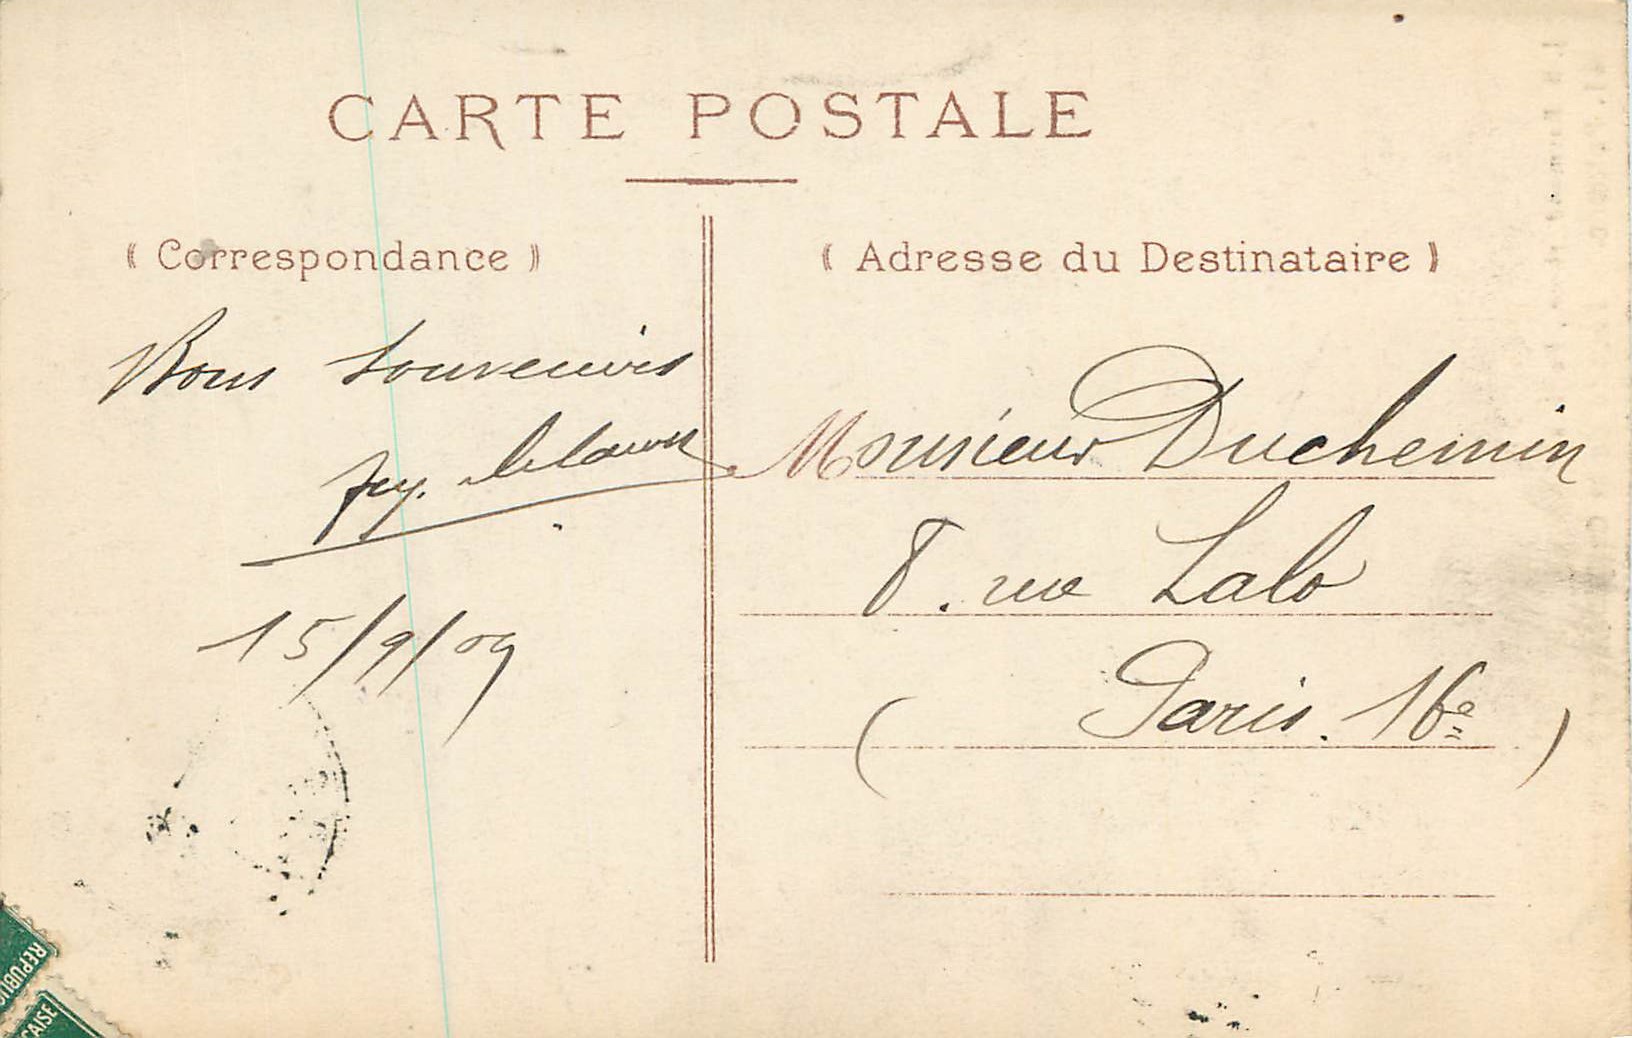 CARTE POSTALE
( Correspondance )
Bons souvenirs
15/9/09
( Adresse du Destinataire )
Monsieur Duchemin
8. rue Lalo
( Paris. 16e )
REPUBLIC
ÇAISE